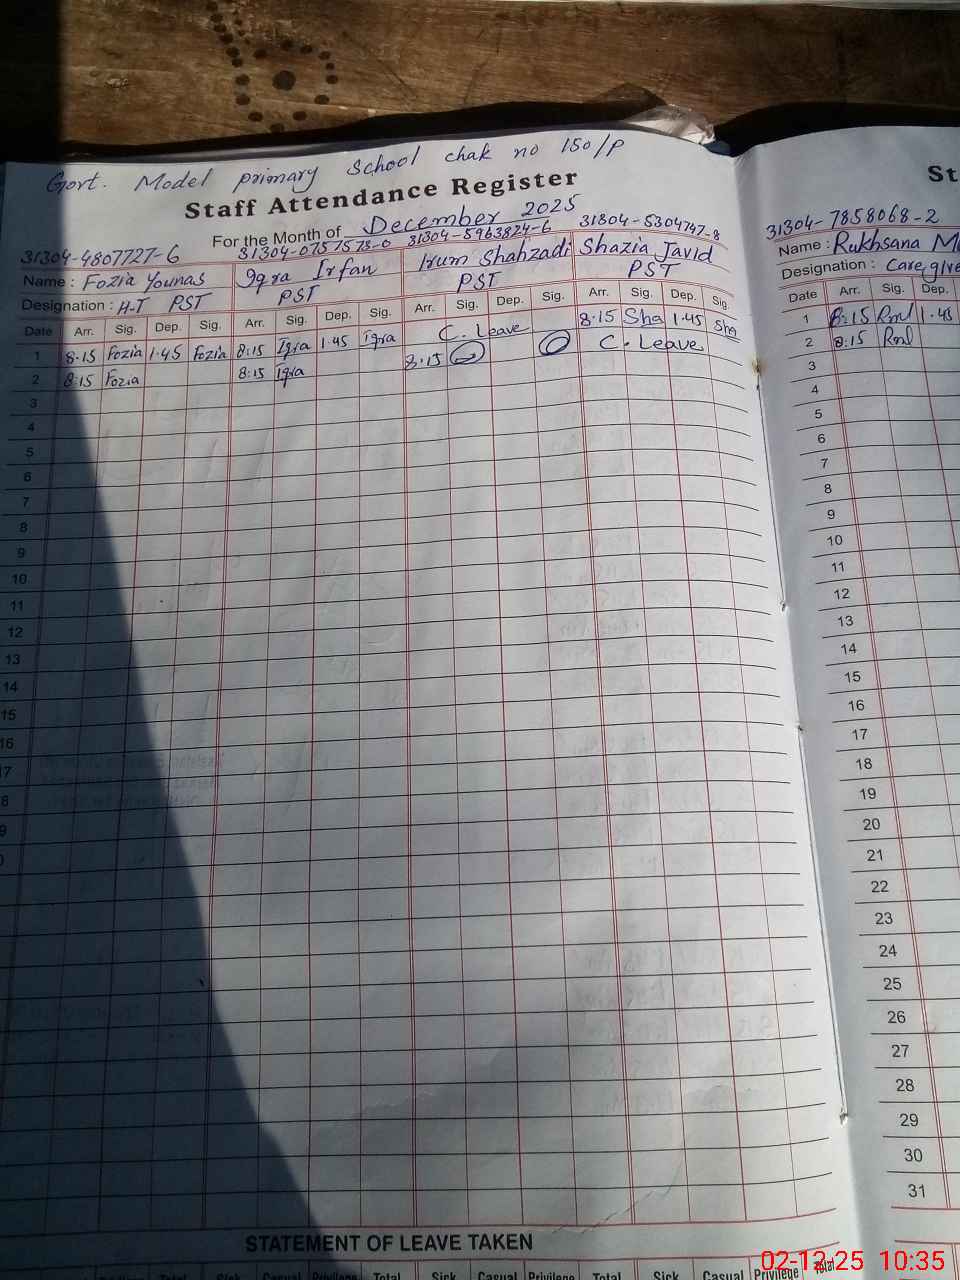 Govt. Model primary School chak no 150/P
Staff Attendance Register
For the Month of December 2025
31304-4807727-6 31304-0757578-0 31304-5963824-6 31304-5304747-8
Name : Fozia Younas Iqra Irfan Irum Shahzadi Shazia Javid
Designation : H-T PST PST PST PST
Date Arr. Sig. Dep. Sig. Arr. Sig. Dep. Sig. Arr. Sig. Dep. Sig. Arr. Sig. Dep. Sig.
1 8:15 Fozia 1:45 Fozia 8:15 Iqra 1:45 Iqra C. Leave 8:15 Sha 1:45 Sha
2 8:15 Fozia 8:15 Iqra 8:15 C. Leave
3
4
5
6
7
8
9
10
11
12
13
14
15
16
17
8
9
0
STATEMENT OF LEAVE TAKEN
Total Sick Casual Privilege Total Sick Casual Privilege Total Sick Casual Privilege Total
St
31304-7858068-2
Name : Rukhsana
Designation : Caregive
Date Arr. Sig. Dep.
1 8:15 Rml 1:45
2 8:15 Rml
3
4
5
6
7
8
9
10
11
12
13
14
15
16
17
18
19
20
21
22
23
24
25
26
27
28
29
30
31
02-12-25 10:35